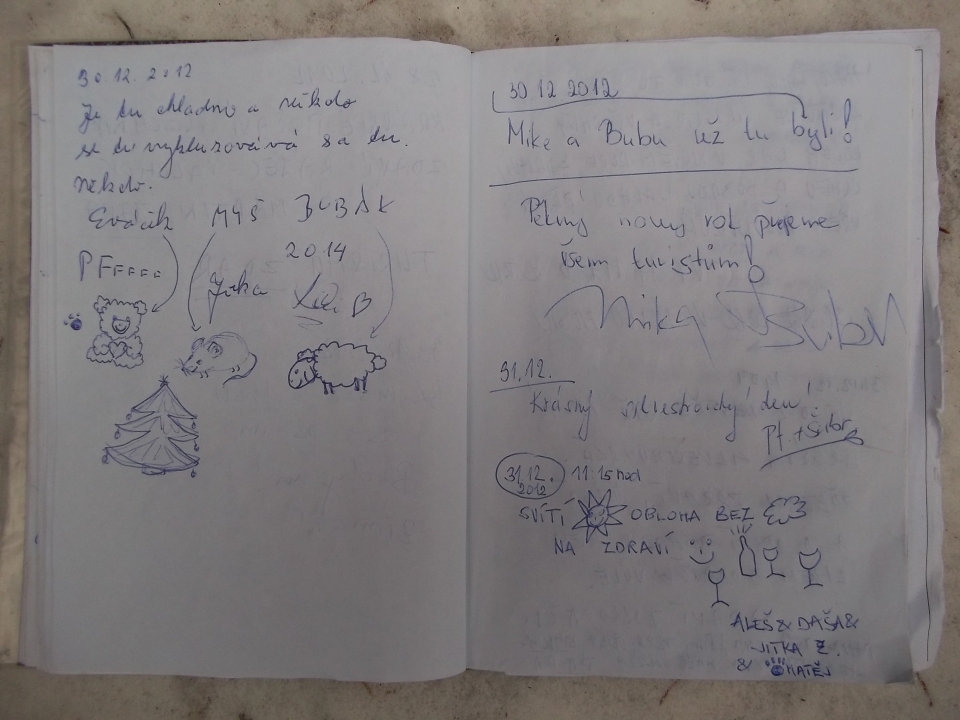 30.12.2012
Je tu chladno a někdo
se tu vykluzovává sa tu.
někdo.
Eváčik MYŠ BUBÁK
PFFFFF 2014
Jitka B
30.12.2012
Mike a Bubu už tu byli!
Pěkný nový rok přejeme
všem turistům!
Mike Bubu
31.12.
Krásný silvestrovský den!
Pf.
31.12. 2012 11:15 hod
SVÍTÍ OBLOHA BEZ
NA ZDRAVÍ
ALEŠ & DAŠA &
JITKA Z.
& MATĚJ